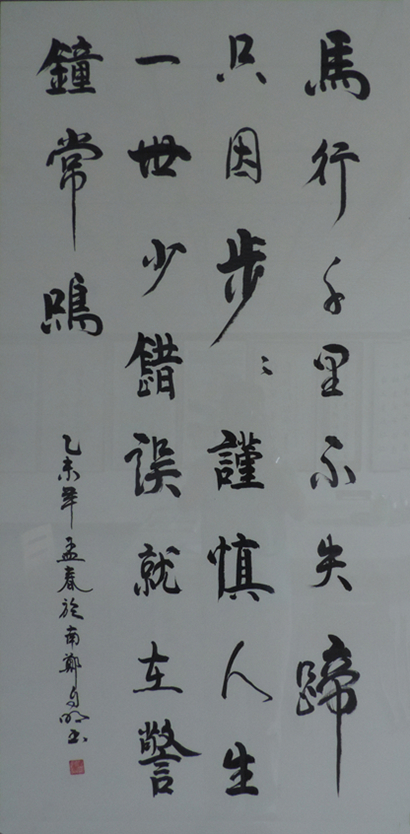 馬行千里不失蹄
只因步〻謹慎人生
一世少錯誤就在警
鐘常鳴
乙未年孟春於南鄭自明书